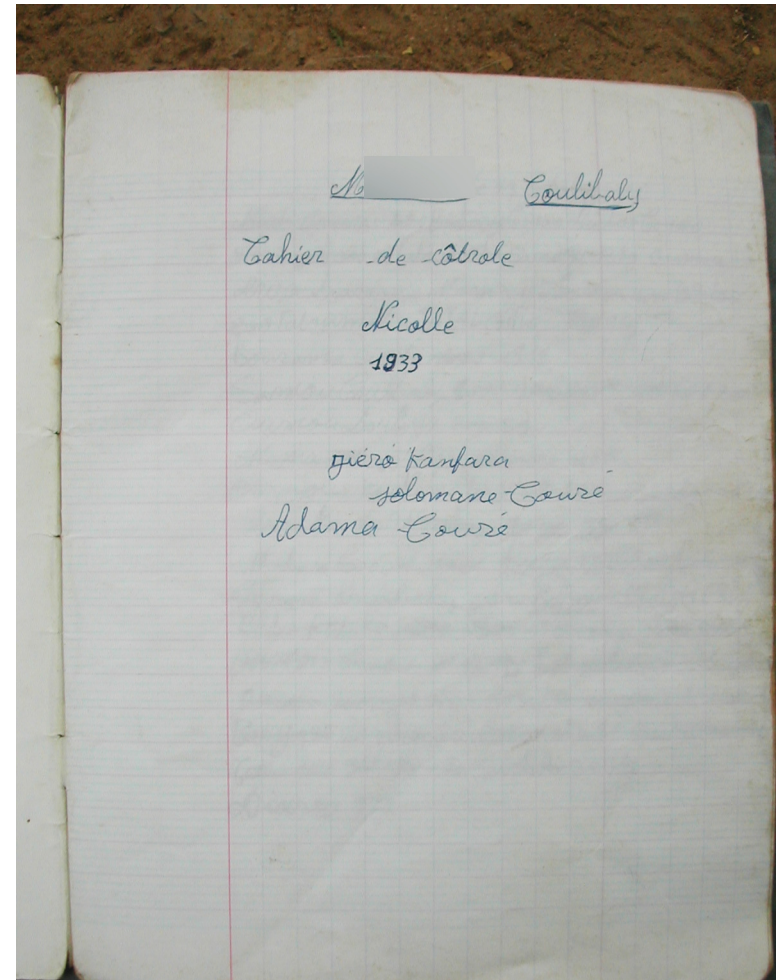 Coulibaly
Cahier de côtrole
Nicolle
1933
Jiéro Kanfara
solomane Couré
Adama Couré